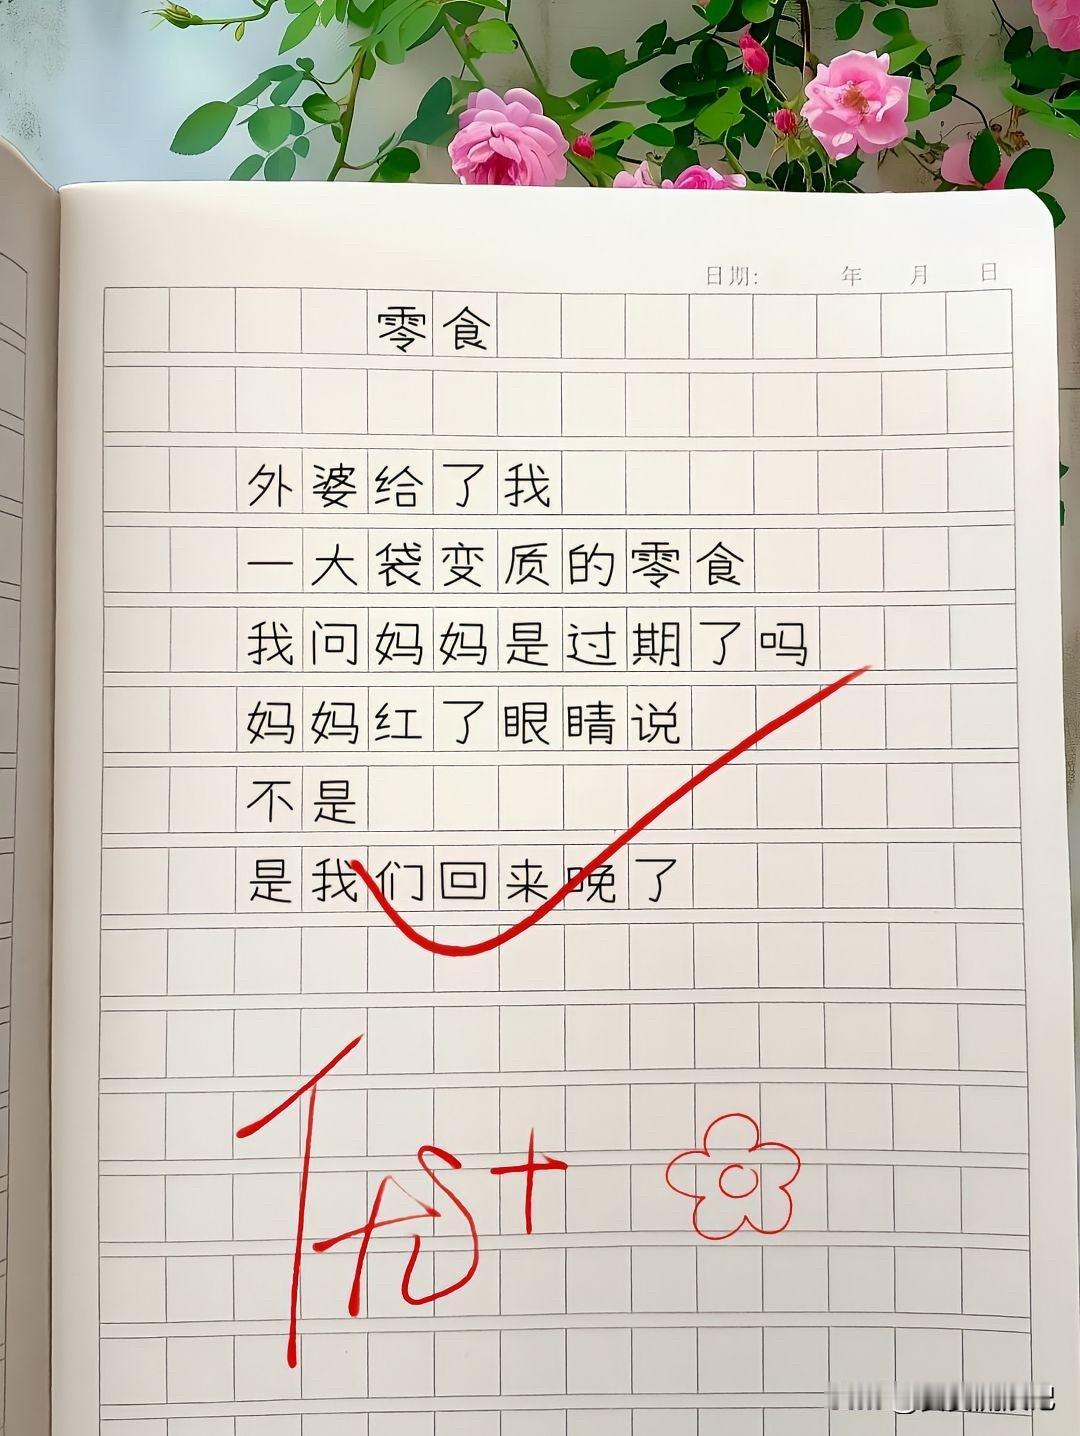 日期: 年 月 日
零食
外婆给了我
一大袋变质的零食
我问妈妈是过期了吗
妈妈红了眼睛说
不是
是我们回来晚了